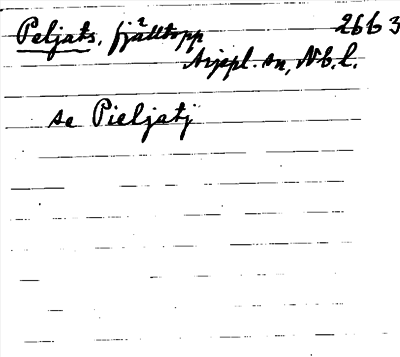 Peljats, fjälltopp 2663
Arjepl. sn, Nb. l.
se Pieljatj